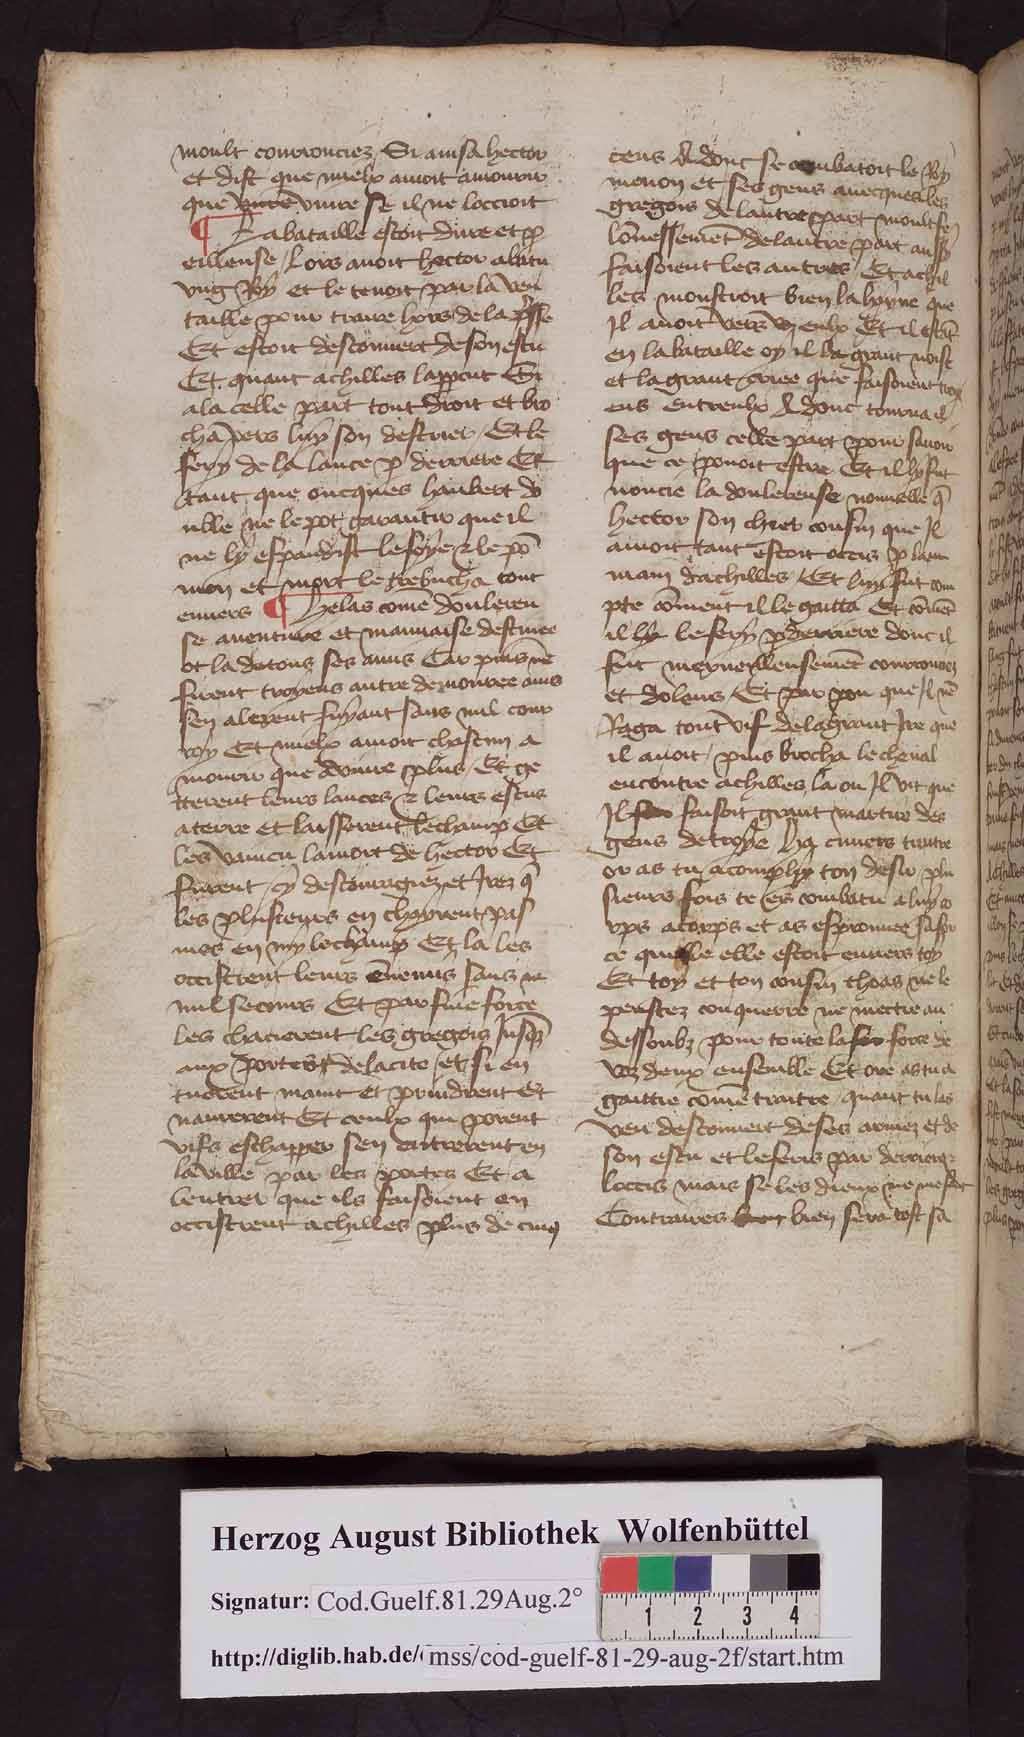 moult courrouciez Si auisa hector
et dist que mielx amoit amourir
que viure se il ne loccioit
¶ La bataille estoit dure et p
eilleuse / Lors auoit hector abatu
vng Roy et le tenoit par la ven
taille pour traire hors de la psse
Et estoit descouuert de son escu
Et quant achilles lappcut Si
ala celle part tout droit et bro
cha vers luy son destrier / Et le
fery de la lance p derriere Et
tant que oncques haubert do
uble ne le pot garantir que il
ne ly espandist le foye & le po
mon et mort le trebucha tout
enuers ¶ Helas come doulereu
se auenture et mauuaise destinee
ot la dotous ses amis Car puis ne
furent troyens autre demouree ains
sen alerent fuyant sans nul conr
roy Et mielx amoit chascun a
mourir que viure plus / Et ge
tterent leurs lances & leurs escus
a terre et laisserent le champ Et
les vaincu la mort de hector Et
furent cy descouragiez et Irez q
les plusieurs en chayrent pas
mes en my le champ Et la les
occistrent leurs enemis sans ne
nul secours Et par fine force
les chacierent les gregois Jusqz
aux portes de la cite / et si en
tuerent maint et prindrent et
naurerent Et ceulx qui porent
vifs eschapper sen entrerent en
la ville par les portes Et a
lentrer que ils faisoient en
occistrent achilles plus de cinq
cens Adont se combatoit le Roy
menon et ses gens auecques les
gregois de lautre part moult fe
lonessement de lautre part aussy
faisoient les autres / Et achil
les monstroit bien la hayne que
Il auoit vers eulx Et il
en la bataille oy il la grant noise
et la grant criee que faisoient troy
ens entreulx Adonc tourna il
ses gens celle part pour sauoir
que ce pouoit estre Et il ly fut
noncie la doulereuse nouuelle q
hector son chier cousin que Il
amoit tant estoit occis p la
main dachilles / Et luy fut com
pte coment il le gaitta Et coment
il le fery p derriere donc il
fut merueilleusement courrouciez
et dolens / Et par pou que Il ne
Raga tout vif de la grant Ire que
il auoit / puis brocha le cheual
encontre achilles la ou Il vit que
Il faisoit grant martire des
gens de troye Ha cuuers traitre
or as tu acomply ton desir plu
sieurs fois te es combatu a luy co
rps a corps et as esprouuee sa for
ce quelle elle estoit enuers toy
Et toy et ton cousin thoas ne le
peustez conquerre ne mectre au
dessoubz pour toute la force de
voz deux ensemble Et ore as tu a
gaittie come traitre / quant tu las
veu descouuert de ses armez et de
son escu et le feris par derriere
loccis mais se les dieux ne me sont
Contraires bien sera tost sa
Herzog August Bibliothek Wolfenbüttel
Signatur: Cod.Guelf.81.29Aug.2°
http://diglib.hab.de/mss/cod-guelf-81-29-aug-2f/start.htm
1 2 3 4